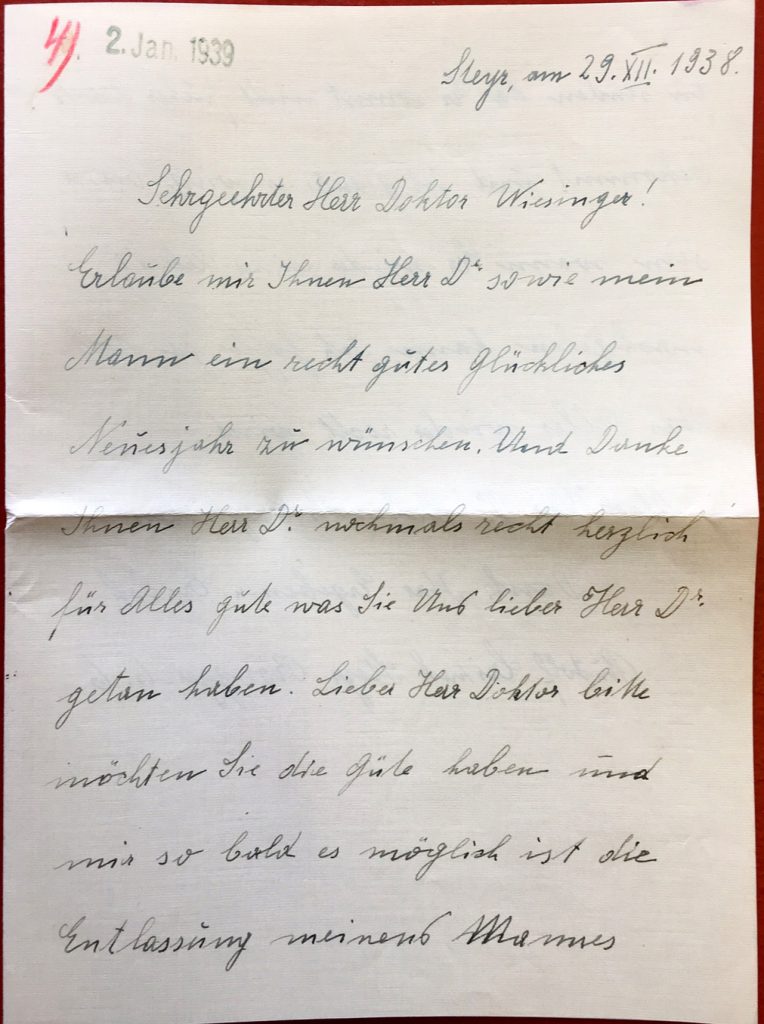 4). 2. Jan. 1939
Steyr, am 29. XII. 1938.
Sehrgeehrter Herr Doktor Wiesinger!
Erlaube mir Ihnen Herr Dr. sowie mein
Mann ein recht gutes Glückliches
Neuesjahr zu wünschen. Und Danke
Ihnen Herr Dr. nochmals recht herzlich
für Alles gute was Sie Uns lieber Herr Dr.
getan haben. Lieber Herr Doktor bitte
möchten Sie die Güte haben und
mir so bald es möglich ist die
Entlassung meinens Mannes